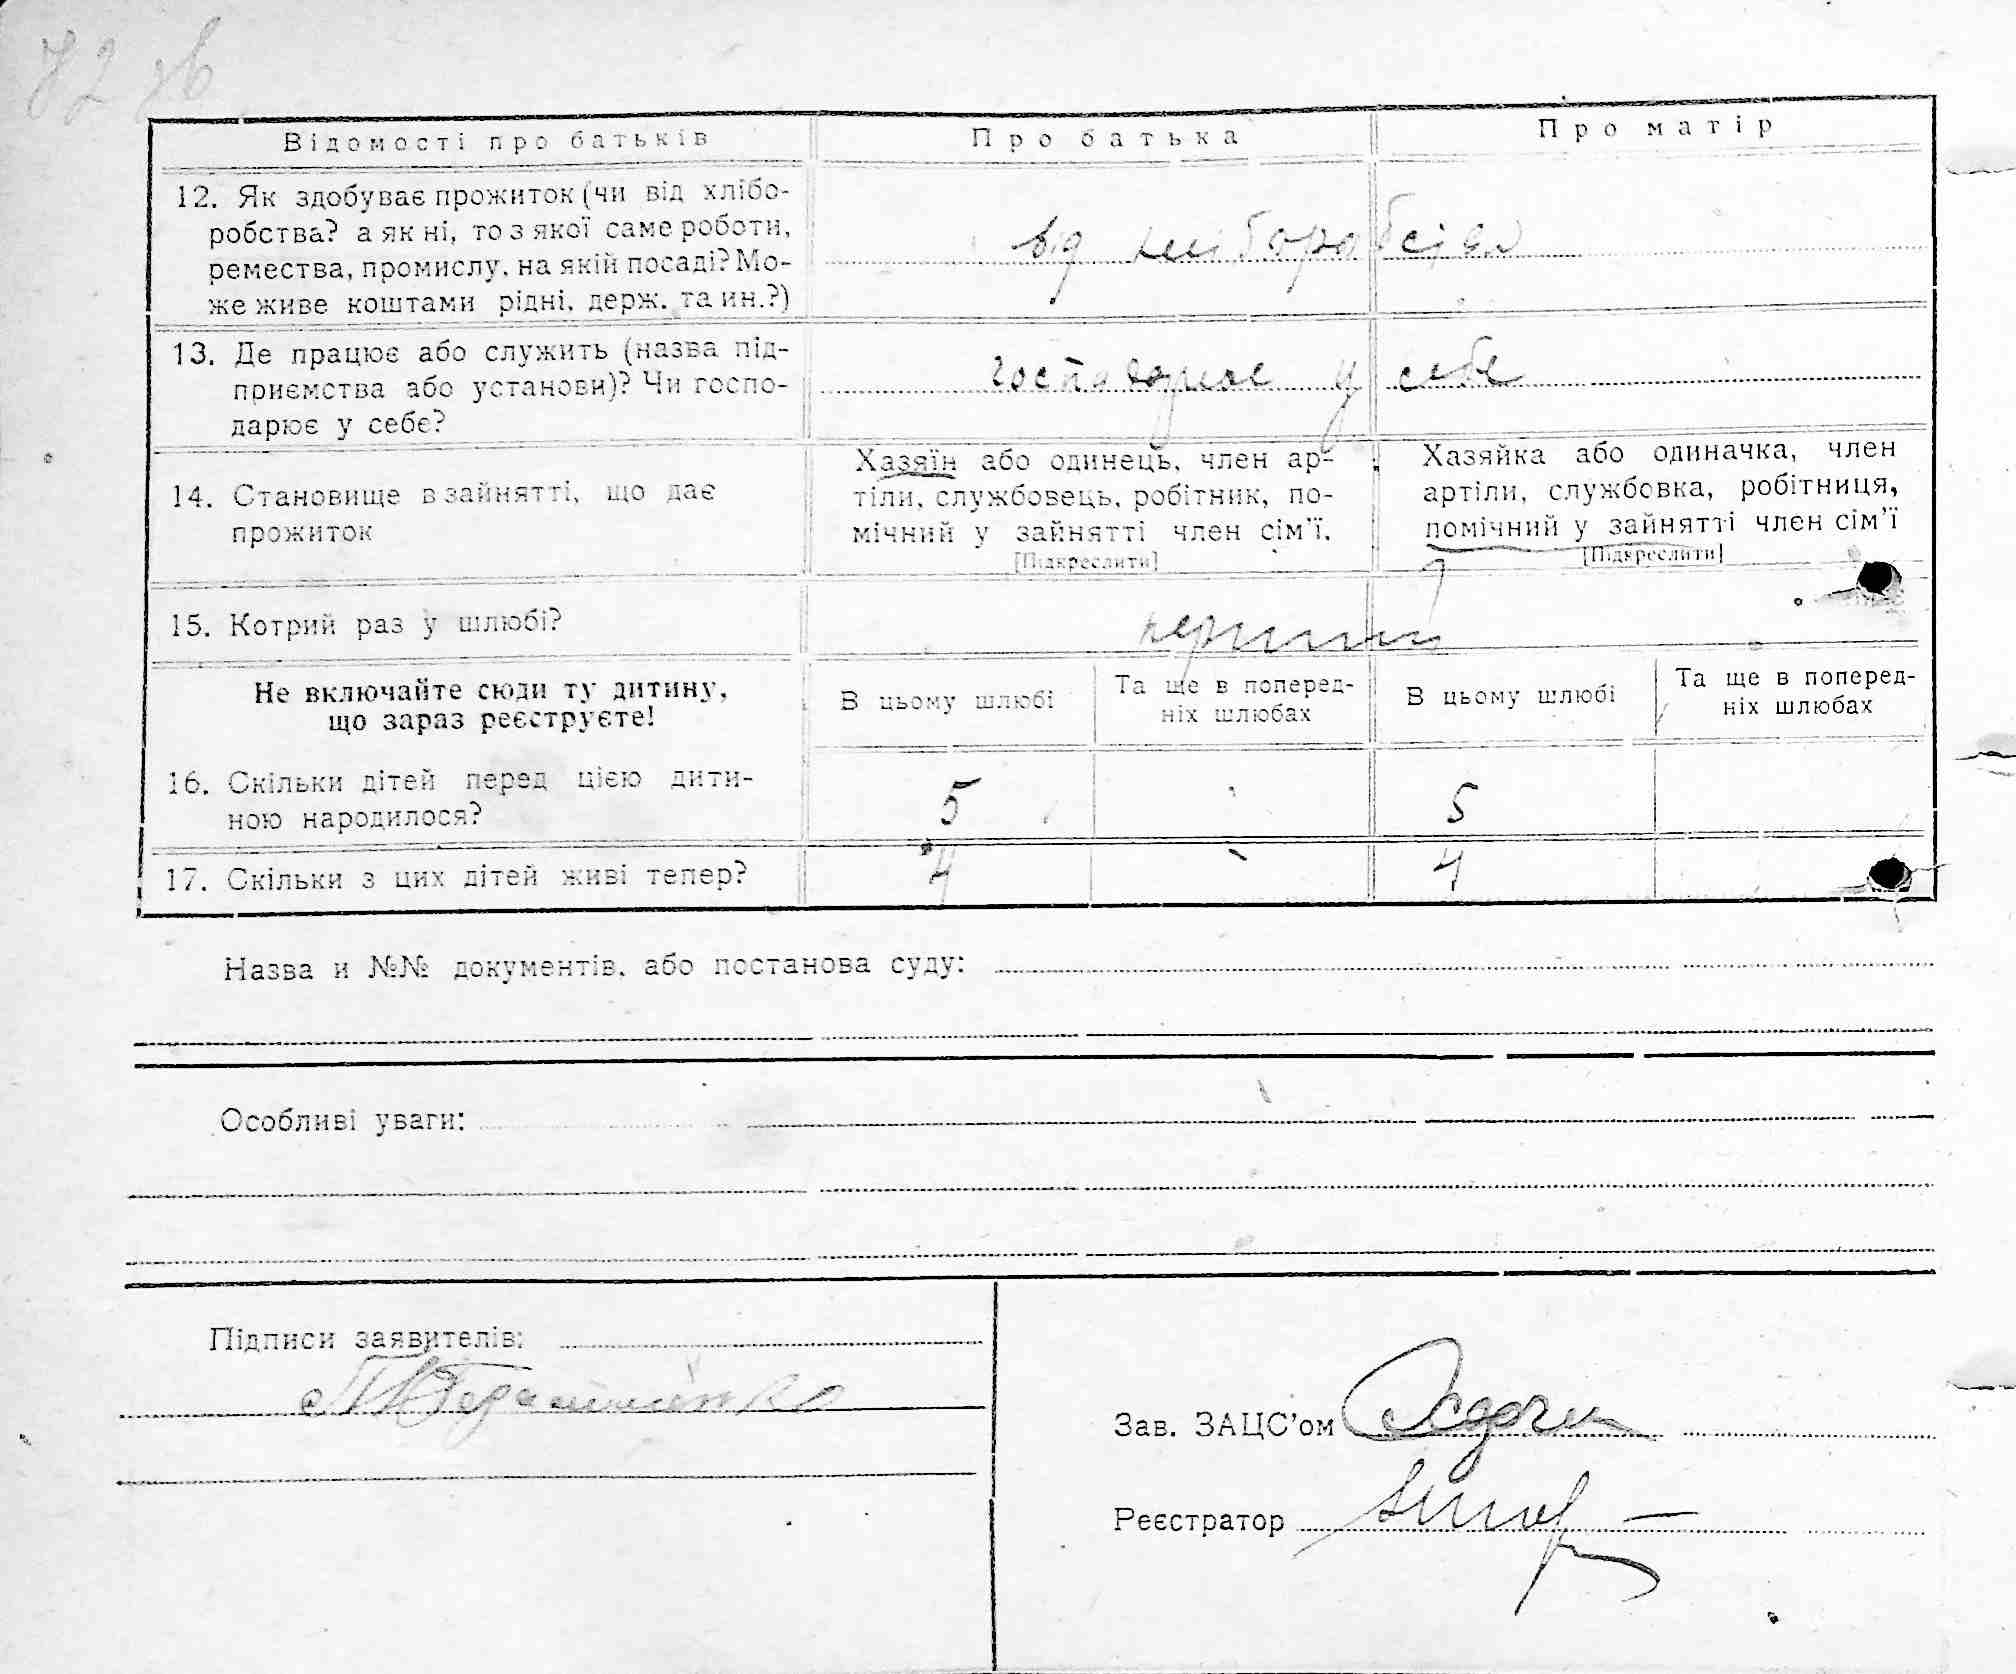 72 зв
Відомості про батьків
Про батька
Про матір
12. Як здобуває прожиток (чи від хлібо-
робства? а як ні, то з якої саме роботи,
ремества, промислу, на якій посаді? Мо-
же живе коштами рідні, держ. та ин.?)
від хліборобства
13. Де працює або служить (назва під-
приємства або установи)? Чи госпо-
дарює у себе?
господарює у себе
14. Становище в зайнятті, що дає
прожиток
Хазяїн або одинець, член ар-
тіли, службовець, робітник, по-
мічний у зайнятті член сім'ї.
[Підкреслити]
Хазяйка або одиначка, член
артіли, службовка, робітниця,
помічний у зайнятті член сім'ї
[Підкреслити]
15. Котрий раз у шлюбі?
перший
Не включайте сюди ту дитину,
що зараз реєструєте!
В цьому шлюбі
Та ще в поперед-
ніх шлюбах
В цьому шлюбі
Та ще в поперед-
ніх шлюбах
16. Скільки дітей перед цією дити-
ною народилося?
5
5
17. Скільки з цих дітей живі тепер?
4
4
Назва и №№ документів, або постанова суду:
Особливі уваги:
Підписи заявителів:
Зав. ЗАЦС'ом
Реєстратор